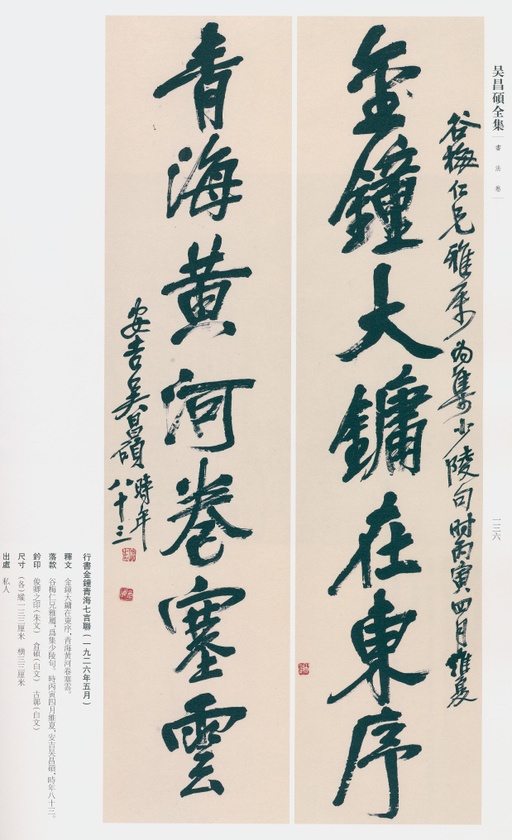 吴昌碩全集
書法卷
一三六
谷梅仁兄雅屬為集少陵句時丙寅四月維夏
金鐘大鏞在東序
青海黃河卷塞雲
安吉吳昌碩時年
八十三
行書金鐘青海七言聯(一九二六年五月)
釋文 金鐘大鏞在東序,青海黃河卷塞雲。
落款 谷梅仁兄雅屬,爲集少陵句。時丙寅四月維夏,安吉吳昌碩,時年八十三。
鈐印 俊卿之印(朱文) 倉碩(白文) 古鄣(白文)
尺寸 (各)縱一三三厘米 橫三三厘米
出處 私人